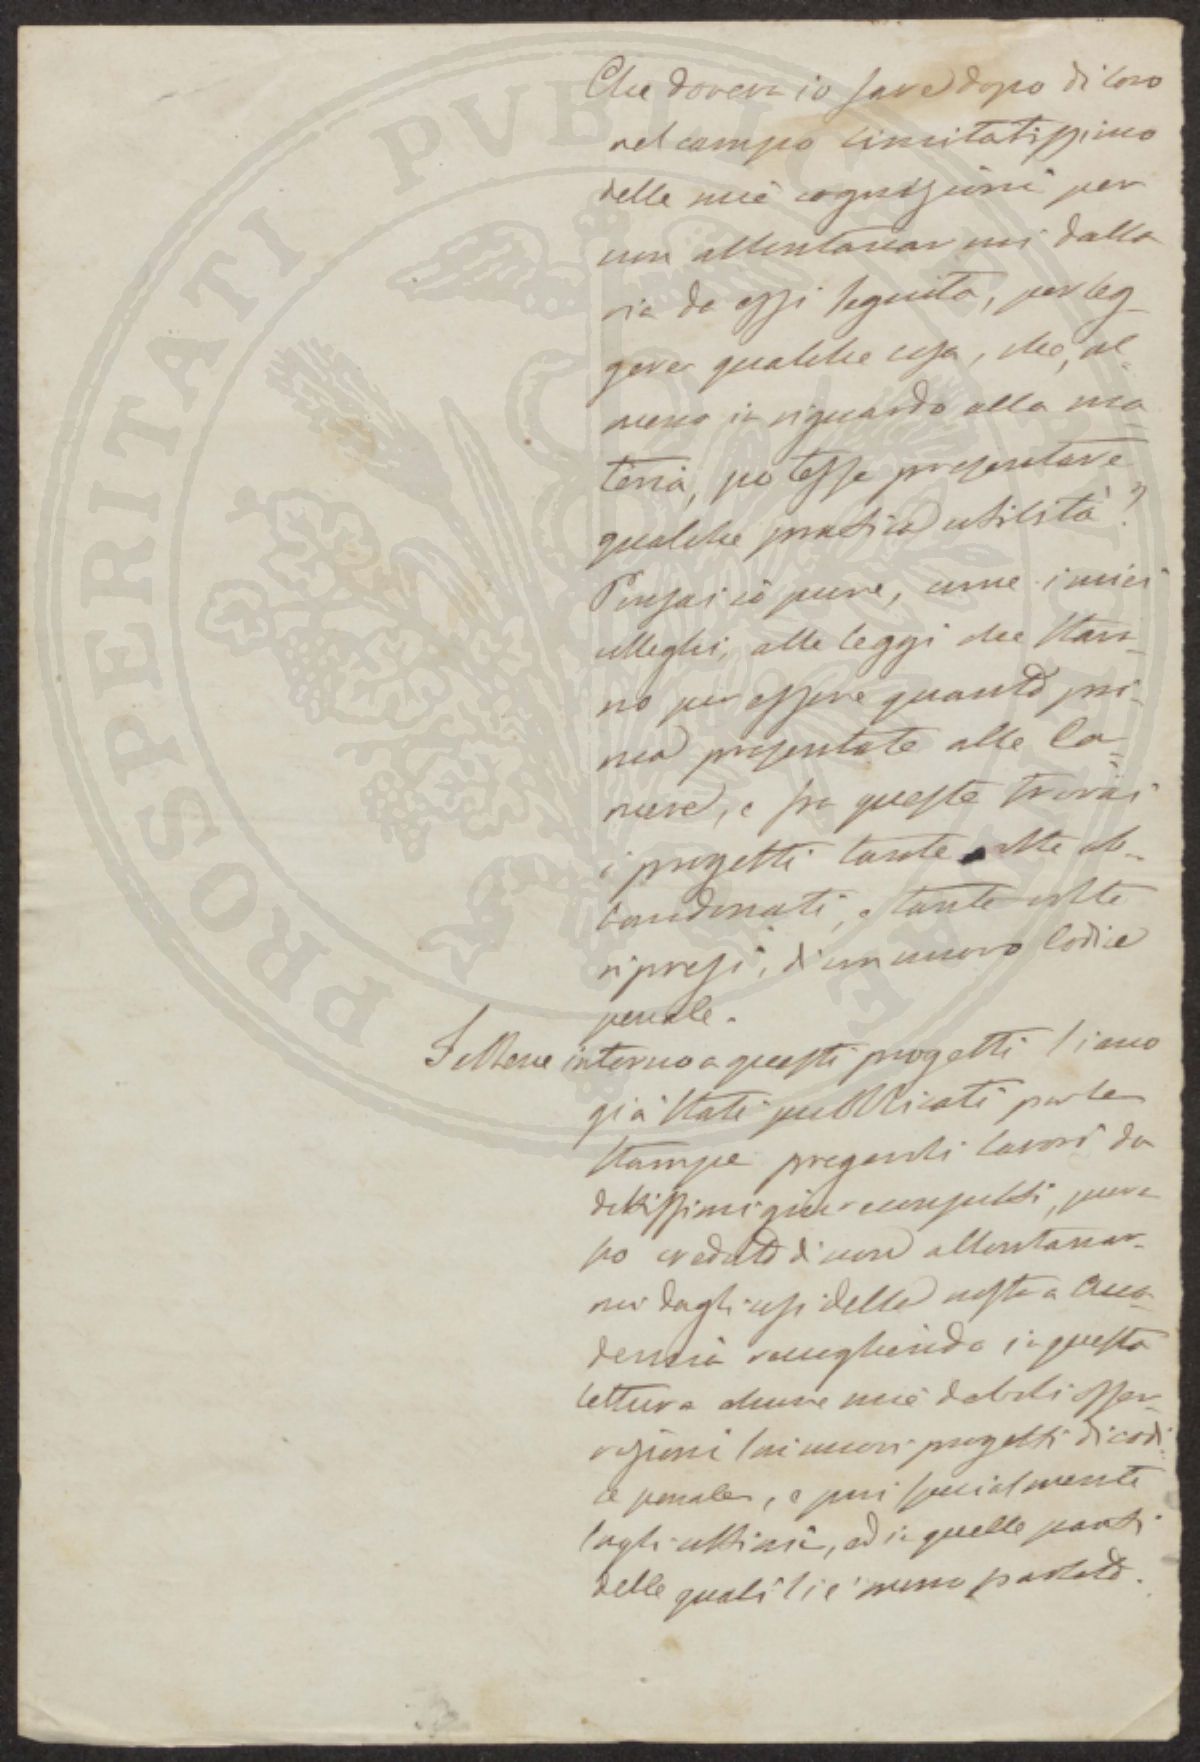 Che doveva io fare dopo di loro
nel campo limitatissimo
delle mie cognizioni per
non allontanarmi dalla
via da essi seguita, per leg-
gere qualche cosa, che, al-
meno in riguardo alla ma
teria, potesse presentare
qualche pratica utilità?
Pensai io pure, come i miei
colleghi, alle leggi che stan-
no per essere quanto pri-
ma presentate alle Ca-
mere, e fra queste trovai
i progetti tante volte ab-
bandonati, e tante volte
ripresi, di un nuovo Codice
penale.
Sebbene intorno a questi progetti siano
già stati pubblicati per le
stampe pregevoli lavori da
dottissimi giureconsulti, pure
ho creduto di non allontanar-
mi dagli usi della nostra Acca-
demia raccogliendo in questa
lettura alcune mie deboli osser-
vazioni sui nuovi progetti di codi-
ce penale, e più specialmente
sugli ultimi, ed in quelle parti
delle quali si è meno parlato.
PROSPERITATI PUBLICAE AUGENDAE